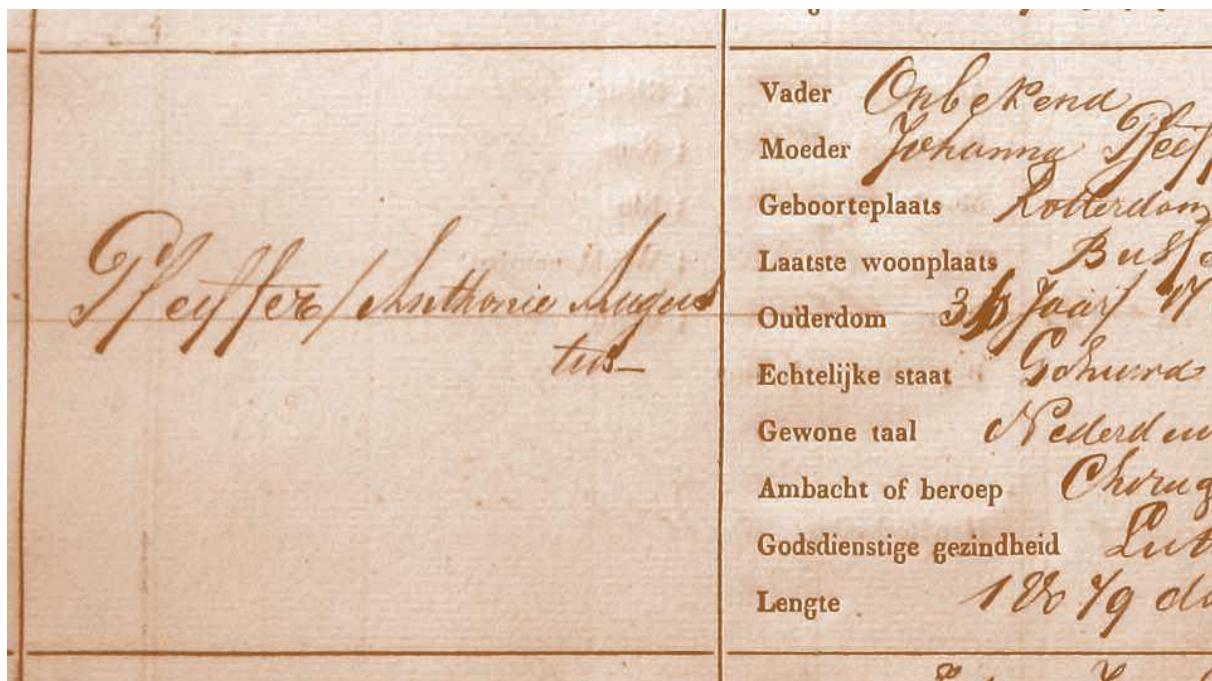 Pfeiffer / Anthonie Augus
tus
Vader Onbekend
Moeder Johanna Pfeiff
Geboorteplaats Rotterdam
Laatste woonplaats Buss
Ouderdom Jaar
Echtelijke staat Gehuwd
Gewone taal Nederdui
Ambacht of beroep Chirug
Godsdienstige gezindheid Lut
Lengte